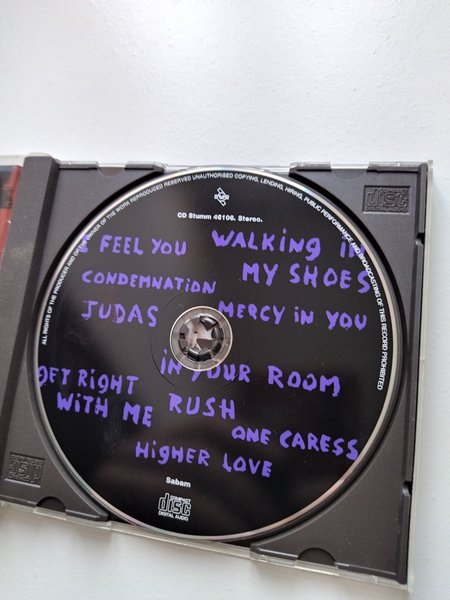 ALL RIGHTS OF THE PRODUCER AND OF THE OWNER OF THE WORK REPRODUCED RESERVED UNAUTHORISED COPYING, LENDING, HIRING, PUBLIC PERFORMANCE AND BROADCASTING OF THIS RECORD PROHIBITED
CD Stumm 46106. Stereo.
I FEEL YOU
WALKING IN
MY SHOES
CONDEMNATION
JUDAS
MERCY IN YOU
IN YOUR ROOM
GET RIGHT
WITH ME
RUSH
ONE CARESS
HIGHER LOVE
Sabam
COMPACT
disc
DIGITAL AUDIO
COMPACT
disc
DIGITAL AUDIO